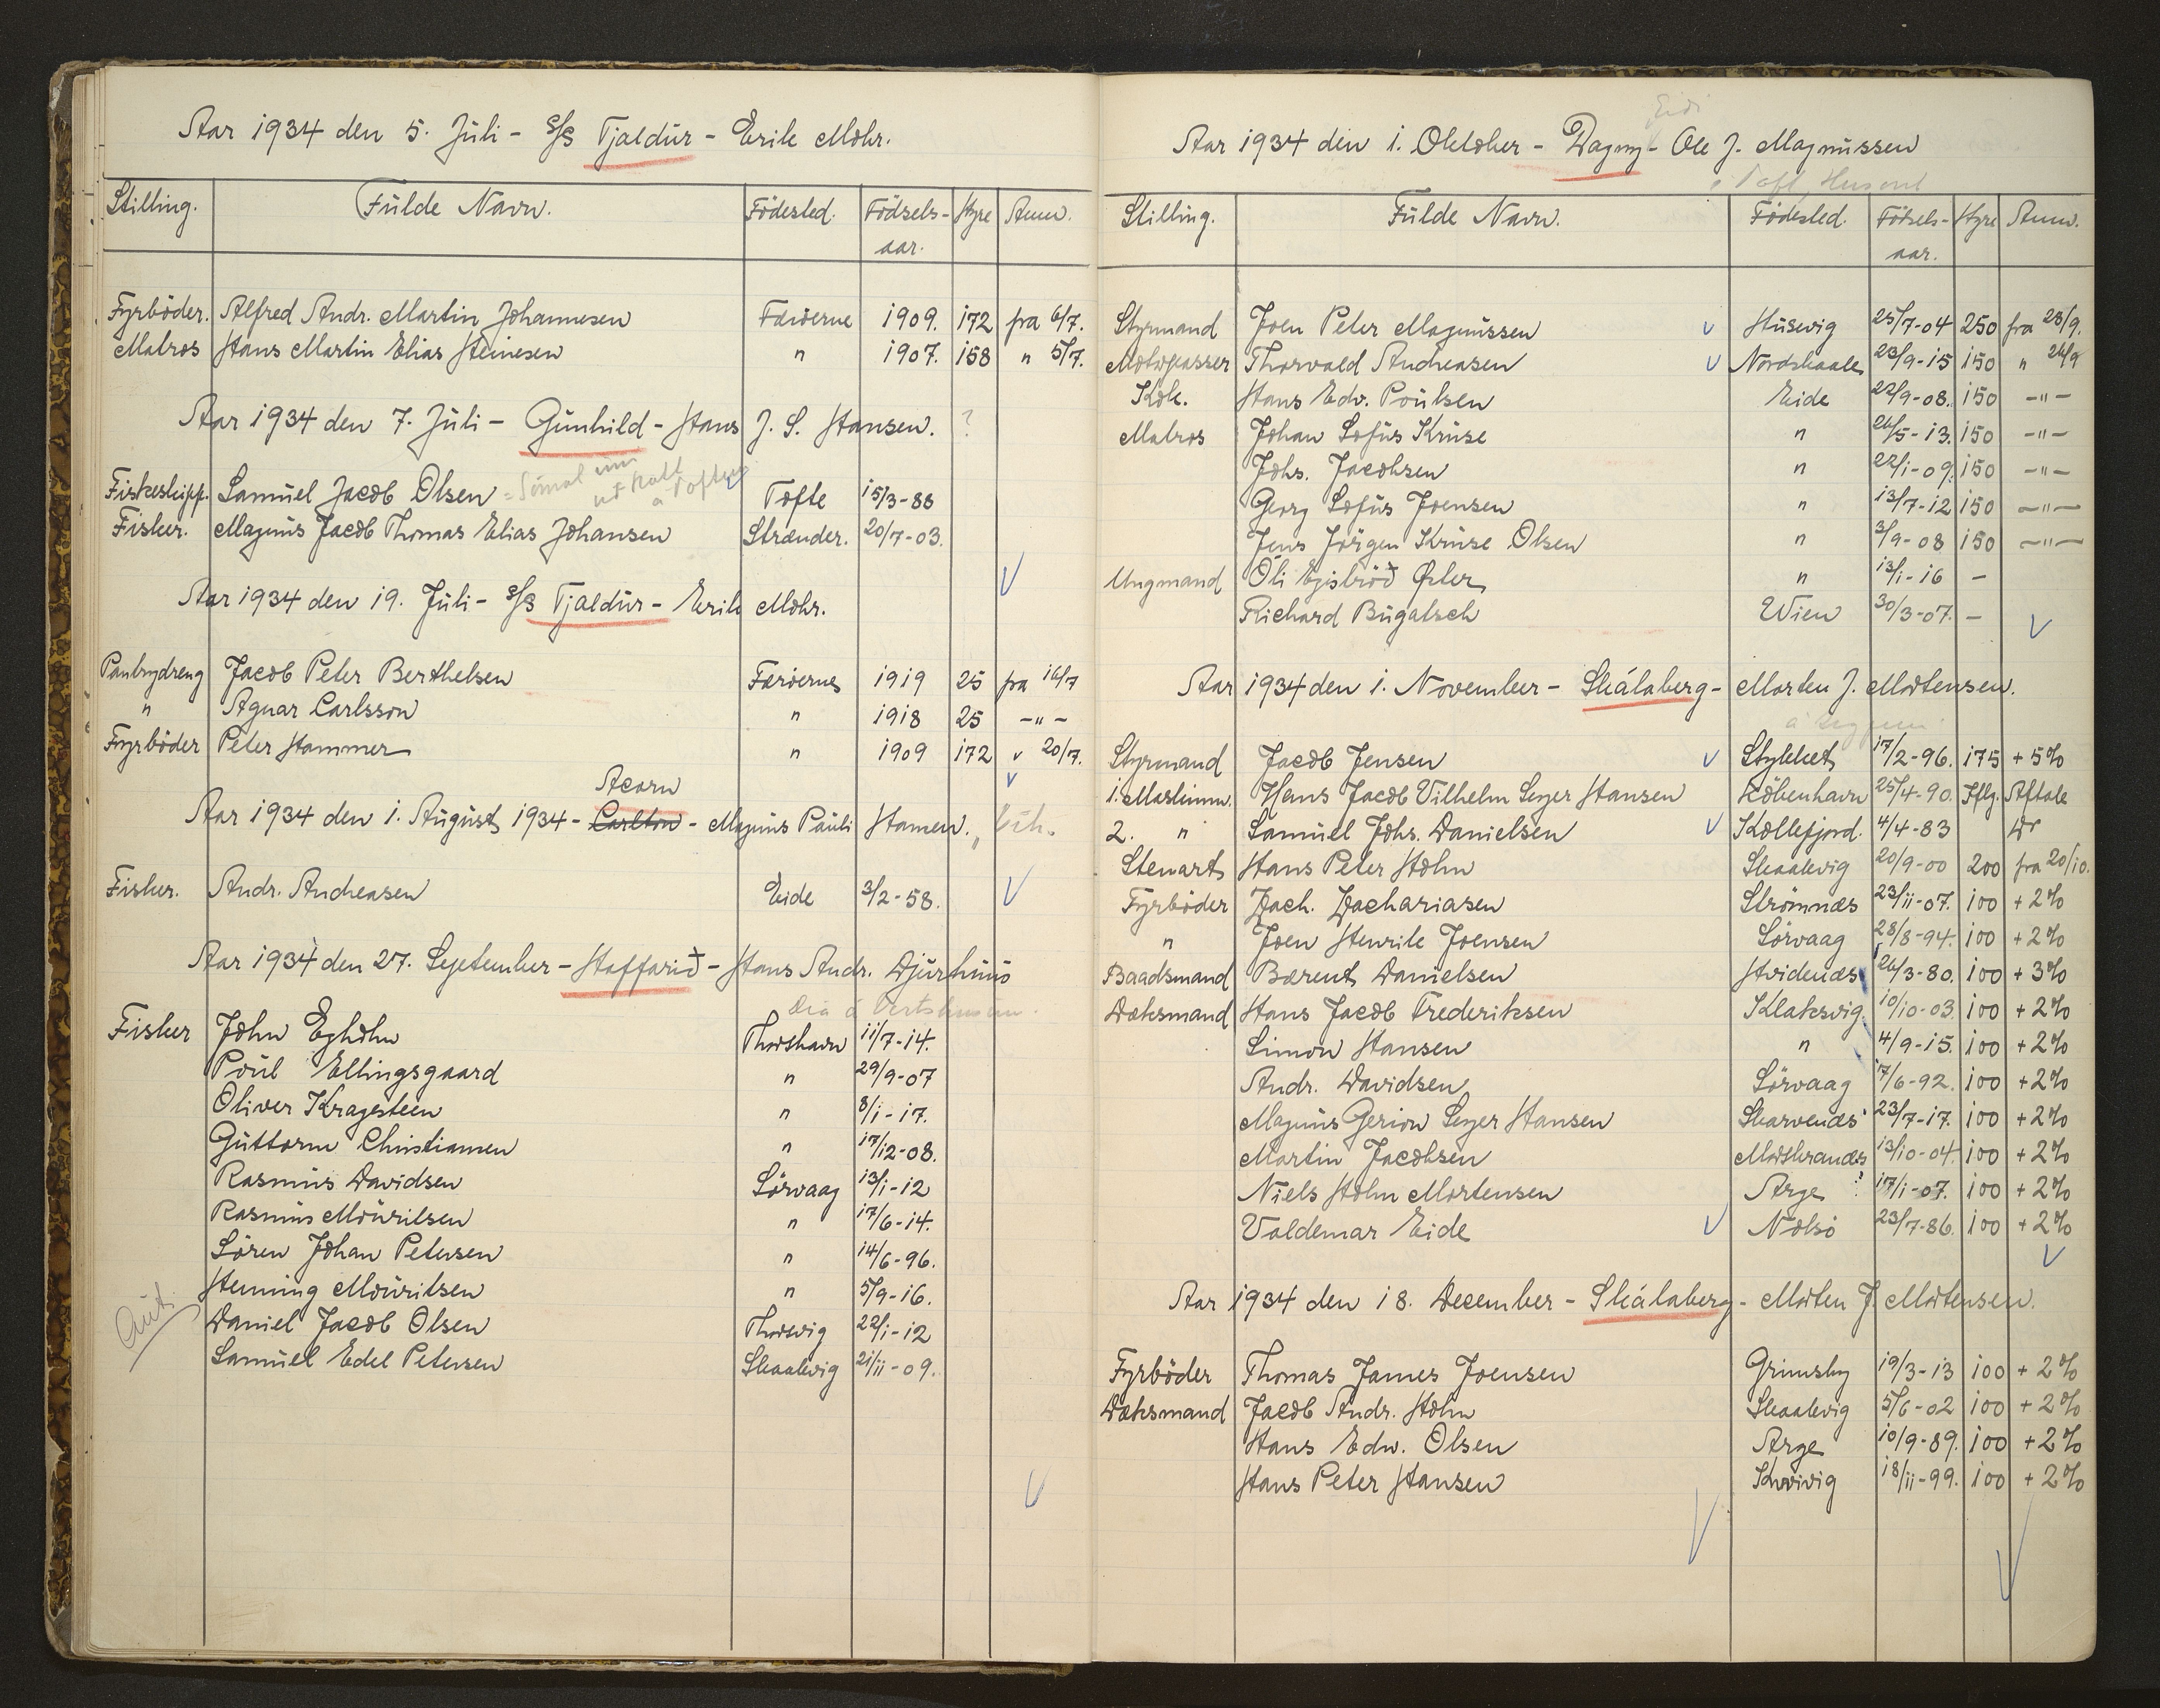 Aar 1934 den 5. Júli - S/S Tjaldúr - Erik Mohr.
Stilling. Fúlde Navn. Födested. Födsels-aar. Hyre Anm.
Fyrböder. Alfred Andr. Martin Johannesen Færöerne 1909. 172 fra 6/7.
Matros Hans Martin Elias Heinesen " 1907. 158 " 5/7.
Aar 1934 den 7. Júli - Gúnhild - Hans J. S. Hansen. ?
Fiskeskipp. Samúel Jacob Olsen Tofte 15/3-88
Fisker. Magnús Jacob Thomas Elias Johansen Strænder. 20/7-03.
Aar 1934 den 19. Júli - S/S Tjaldúr - Erik Mohr.
Pantrydreng Jacob Peter Berthelsen Færöerne 1919 25 fra 16/7
" Agnar Carlsson " 1918 25 -"-
Fyrböder Peter Hammer " 1909 172 " 20/7.
Acorn
Aar 1934 den 1. Aúgúst 1934 - Carlton - Magnús Paúli Hansen.
Fisker. Andr. Andreasen Eide 3/2-58.
Aar 1934 den 27. September - Haffarið - Hans Andr. Djúrhúús
Fisker John Egholm Thorshavn 11/7-14.
Poúl Ellingsgaard " 29/9-07
Oliver Kragesteen " 8/1-17.
Gúttorm Christiansen " 17/12-08.
Rasmús Davidsen Sörvaag 13/1-12
Rasmús Moúritsen " 17/6-14.
Sören Johan Petersen " 14/6-96.
Henning Moúritsen " 5/9-16.
Daniel Jacob Olsen Thorsvig 22/1-12
Samúel Edel Petersen Skaalevig 21/11-09.
Eidi
Aar 1934 den 1. Oktober - Dagny - Ole J. Magnússen
Stilling. Fúlde Navn. Födested. Födsels-aar. Hyre Anm.
Styrmand Joen Peter Magnússen Húsevig 25/7-04 250 fra 28/9.
Motorpasser Thorvald Andreasen Nordskaale 23/9-15 150 " 26/9
Kok. Hans Edv. Poúlsen Eide 22/9-08. 150 -"-
Matros Johan Sofús Krúse " 26/5-13. 150 -"-
Johs. Jacobsen " 22/1-09. 150 -"-
Georg Sofús Joensen " 13/7-12 150 -"-
Jens Jörgen Krúse Olsen " 3/9-08 150 -"-
Ungmand Oli Egisbröð Øster " 13/1-16 -
Richard Búgatsch Wien 30/3-07. -
Aar 1934 den 1. November - Skálaberg - Morten J. Mortensen.
Styrmand Jacob Jensen Stykket 17/2-96. 175 + 5%
1. Maskinm. Hans Jacob Vilhelm Seyer Hansen Köbenhavn 25/4-90. Iflg. Aftale
2. " Samúel Johs. Danielsen Kollefjord. 4/4-83 Do
Stewart Hans Peter Holm Skaalevig 20/9-00 200 fra 20/10.
Fyrböder Zach. Zachariasen Strömnæs 23/11-07. 100 + 2%
" Joen Henrik Joensen Sörvaag 28/8-94. 100 + 2%
Baadsmand Bærent Danielsen Hvidenæs 26/3-80. 100 + 3%
Dæksmand Hans Jacob Frederiksen Klaksvig. 10/10-03. 100 + 2%
Simon Hansen " 4/9-15. 100 + 2%
Andr. Davidsen Sörvaag 17/6-92. 100 + 2%
Magnús Gerion Seyer Hansen Skarvenæs 23/7-17. 100 + 2%
Martin Jacobsen Morskranæs 13/10-04. 100 + 2%
Niels Holm Mortensen Arge 17/1-07. 100 + 2%
Valdemar Eide Nolsö 23/7-86. 100 + 2%
Aar 1934 den 18. December - Skálaberg - Morten J. Mortensen.
Fyrböder Thomas James Joensen Grimsby 19/3-13 100 + 2%
Dæksmand Jacob Andr. Holm Skaalevig 5/6-02 100 + 2%
Hans Edw. Olsen Arge 10/9-89. 100 + 2%
Hans Peter Hansen Kvivig 18/11-99. 100 + 2%